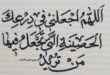 اللهم اجعلني في درعك
الحصينة التي تجعل فيها
من تريد